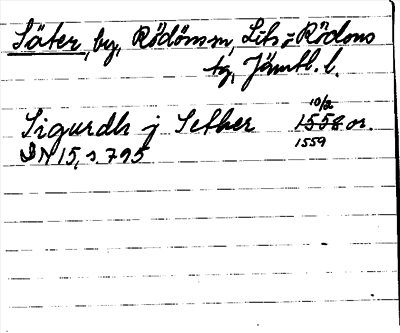 Säter, by, Rödöns sn, Lits o Rödöns
tg, Jämtl. l.
10/2
Sigurdh j Sether 1558 or.
1559
DN 15, s. 795